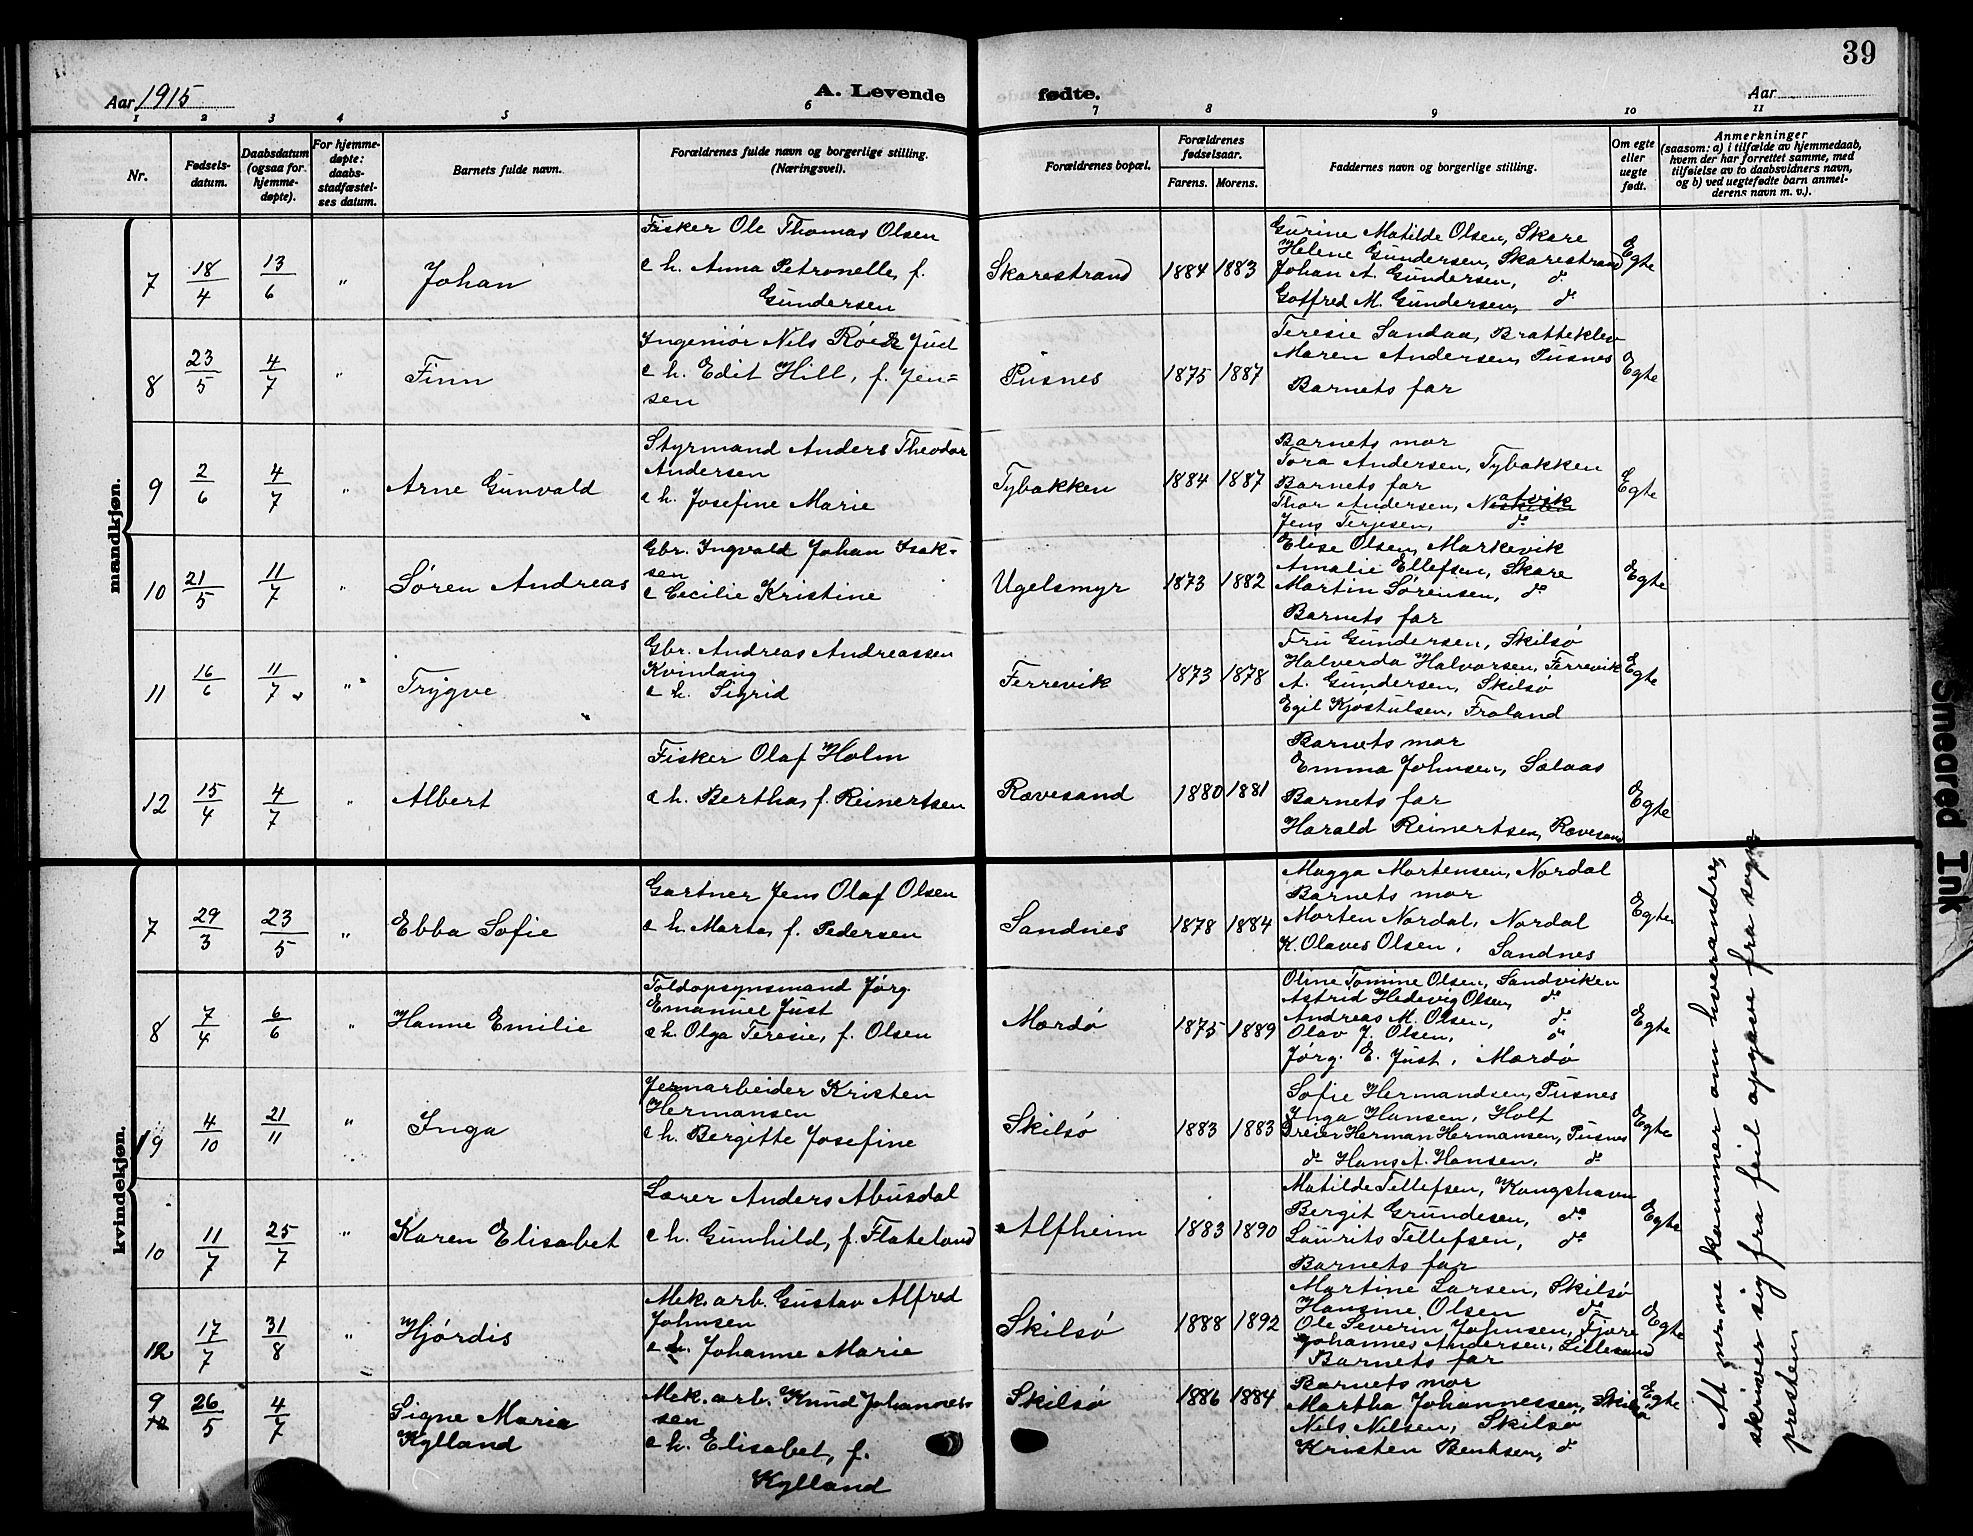 39
Aar 1915
A. Levende fødte.
Aar
1 2 3 4 5 6 7 8 9 10 11
Nr.
Fødsels-
datum.
Daabsdatum
(ogsaa for
hjemme-
døpte).
For hjemme-
døpte:
daabs-
stadfæstel-
ses datum.
Barnets fulde navn.
Forældrenes fulde navn og borgerlige stilling.
(Næringsvei).
Forældrenes bopæl.
Forældrenes
fødselsaar.
Farens. Morens.
Faddernes navn og borgerlige stilling.
Om egte
eller
uegte
født.
Anmerkninger
(saasom: a) i tilfælde av hjemmedaab,
hvem der har forrettet samme, med
tilføielse av to daabsvidners navn,
og b) ved uegtefødte barn anmel-
derens navn m. v.).
mandkjøn.
7 18/4 13/6 " Johan
Fisker Ole Thomas Olsen
e h. Anna Petronelle, f.
Gundersen
Skarestrand 1884 1883
Gurine Matilde Olsen, Skare
Helene Gundersen, Skarestrand
Johan A. Gundersen, do
Gotfred M. Gundersen, do
Egte
8 23/5 4/7 " Finn
Ingeniør Nils Juel
e h. Edit Hill, f. Jen=
sen
Pusnes 1875 1887
Teresie Sandaa, Bratteklev
Maren Andersen, Pusnes
Barnets far
Egte
9 2/6 4/7 " Arne Gunvald
Styrmand Anders Theodor
Andersen
e h. Josefine Marie
Tybakken 1884 1887
Barnets mor
Tora Andersen, Tybakken
Barnets far
Thor Andersen,
Jens Terjesen, do
Egte
10 21/5 11/7 " Søren Andreas
Gbr. Ingvald Johan Isak-
sen
e Cecilie Kristine
Ugelsmyr 1873 1882
Elise Olsen, Markevik
Amalie Ellefsen, Skare
Martin Sørensen, do
Barnets far
Egte
11 16/6 11/7 " Trygve
Gbr. Andreas Andreassen
Kvinlaug
e h. Sigrid
Ferrevik 1873 1878
Fru Gundersen, Skilsø
Halverda Halvorsen, Ferrevik
A. Gundersen, Skilsø
Egil Kjøstulsen, Froland
Egte
12 15/4 4/7 " Albert
Fisker Olaf Holm
e h. Bertha, f. Reinertsen
Rævesand 1880 1881
Barnets mor
Emma Johnsen, Salaas
Barnets far
Harald Reinertsen, Rævesand
Egte
kvindekjøn.
7 29/3 23/5 " Ebba Sofie
Gartner Jens Olaf Olsen
e h. Marta, f. Pedersen
Sandnes 1878 1884
Magga Mortensen, Nordal
Barnets mor
Morten Nordal, Nordal
K. Olaves Olsen, Sandnes
Egte
8 7/4 6/6 " Hanne Emilie
Toldopsynsmand Jørg.
Emanuel Just
e h. Olga Teresie, f. Olsen
Mærdø 1875 1889
Oline Tomine Olsen, Sandviken
Astrid Hedevig Olsen, do
Andreas M. Olsen, do
Olav J. Olsen, do
Jørg. E. Just, Mærdø
Egte
19 4/10 21/11 " Inga
Jernarbeider Kristen
Hermansen
e h. Bergitte Josefine
Skilsø 1883 1883
Sofie Hermandsen, Pusnes
Inga Hansen, Holt
Dreier Herman Hermansen, Pusnes
do Hans A. Hansen, do
Egte
10 11/7 25/7 " Karen Elisabet
Lærer Anders Abusdal
e h. Gunhild, f. Flateland
Alfheim 1883 1890
Matilde Tellefsen, Kongshavn
Bergit Grundesen, do
Laurits Tellefsen, do
Barnets far
Egte
12 17/7 31/8 " Hjørdis
Mek. arb. Gustav Alfred
Johnsen
e h. Johanne Marie
Skilsø 1888 1892
Martine Larsen, Skilsø
Hansine Olsen do
Ole Severin Johnsen, Fjære
Johannes Andersen, Lillesand
Barnets far
Egte
9 12 26/5 4/7 Signe Maria
Kylland
Mek. arb. Knud Johannes-
sen
e h. Elisabet, f.
Kylland
Skilsø 1886 1884
Barnets mor
Martha Johannessen, Skilsø
Nils Nilsen, Skilsø
Kristen Bentsen, do
Egte
At nrne kommer om hverandre,
skriver sig fra feil opgave fra sogne
presten
Smeared Ink